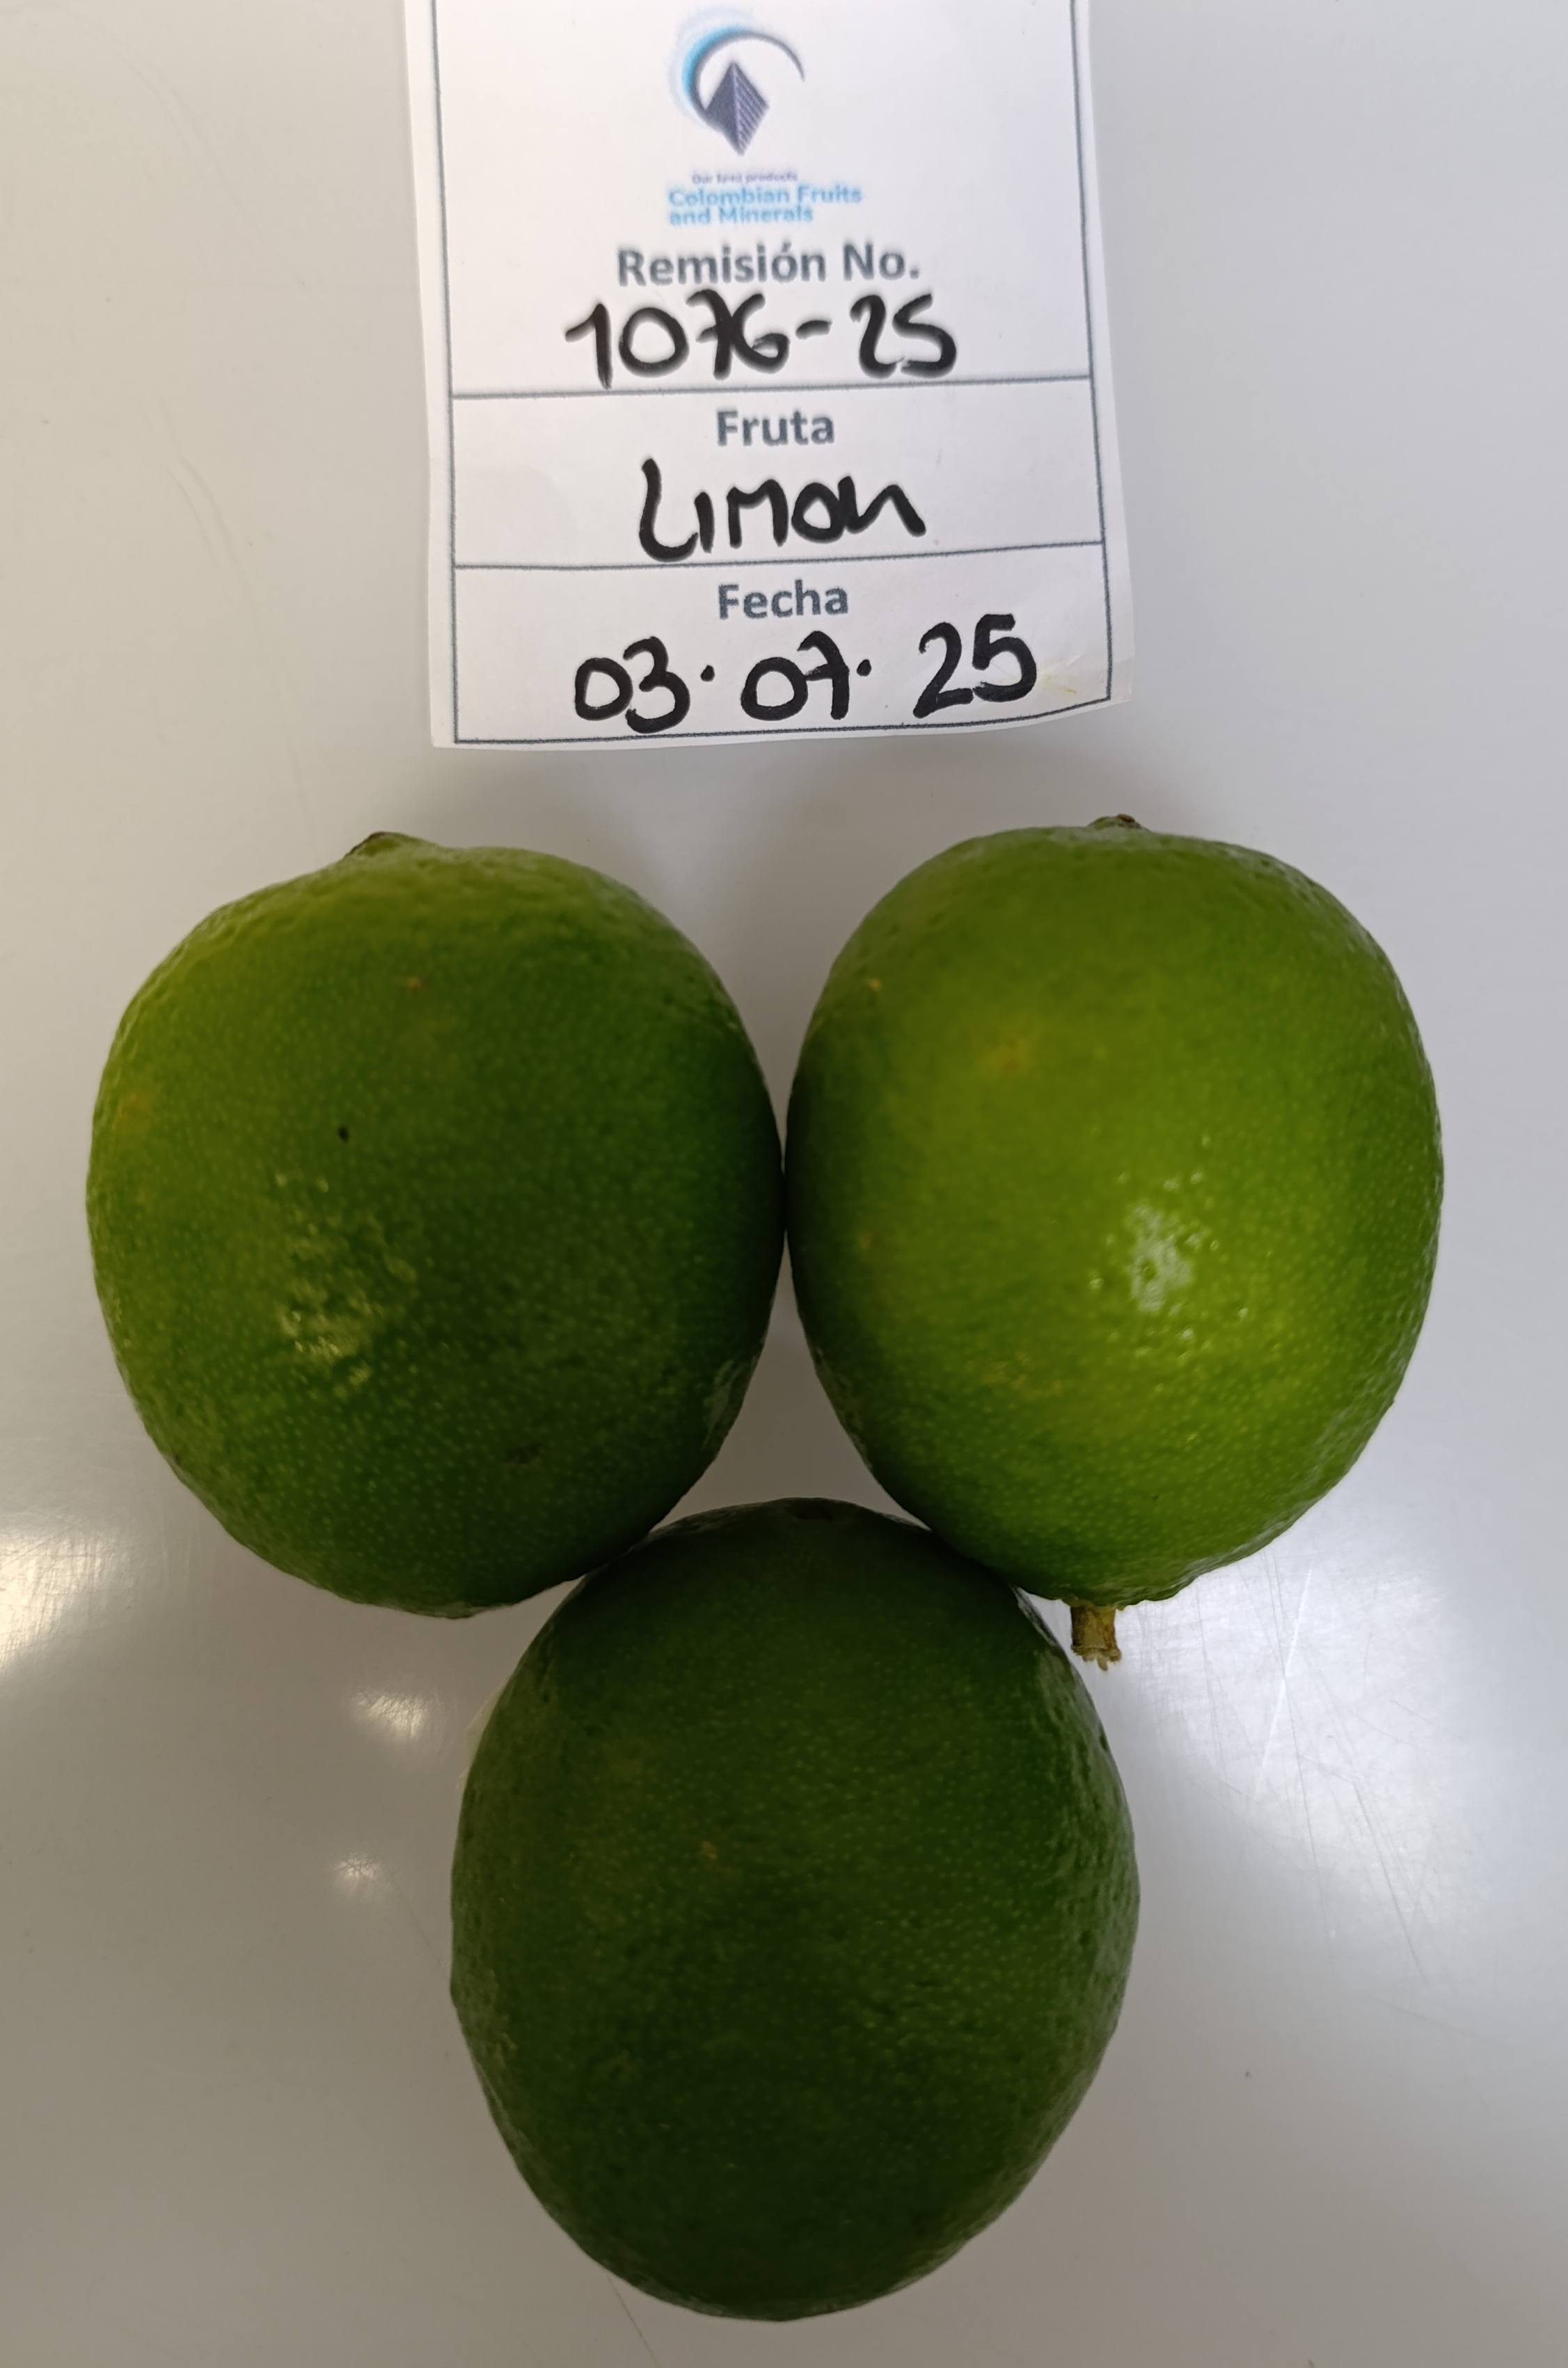 Our best products
Colombian Fruits
and Minerals
Remisión No.
1076-25
Fruta
Limon
Fecha
03·07·25